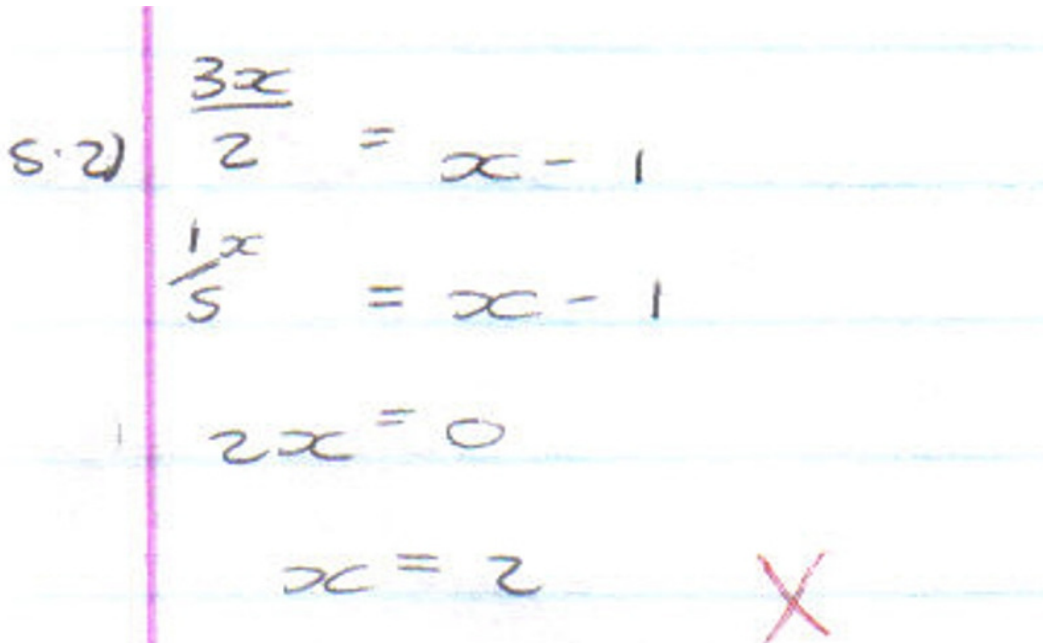 5.2) 3x/2 = x - 1
1x/5 = x - 1
2x = 0
x = 2